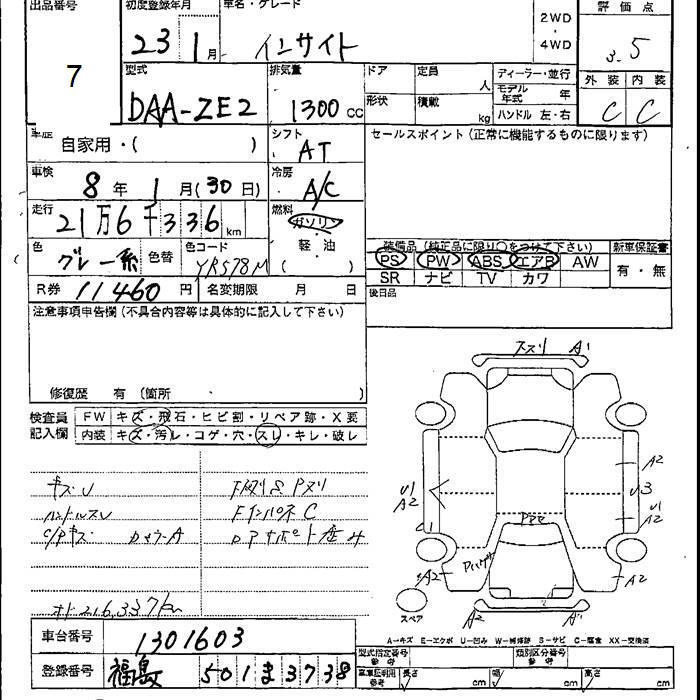 出品番号
7
初度登録年月 車名・グレード
23 1月 インサイト
2WD
・
4WD
評価点
3.5
外装 内装
C C
型式
DAA-ZE2
排気量
1300 CC
ドア 定員 人
形状 積載 kg
ディーラー・並行
モデル年式 年
ハンドル 左・右
車歴 自家用・( )
シフト
AT
セールスポイント(正常に機能するものに限ります)
車検 8年 1月(30日)
冷房
A/C
走行
21万6千336km
燃料
ガソリン
軽・油
( )
色
グレー系
色替
色コード
YR578M
R券 11460円 名変期限 月 日
装備品(純正品に限り○をつけて下さい) 新車保証書
PS PW ABS エアB AW 有・無
SR ナビ TV カワ
後日品
注意事項申告欄(不具合内容等は具体的に記入して下さい)
修復歴 有(箇所 )
検査員記入欄
FW キズ・飛石・ヒビ割・リペア跡・X要
内装 キズ・汚レ・コゲ・穴・スレ・キレ・破レ
キズU
ハンドルスレ
C/Pキズ
FインパネC
オド216,337km
ススリ A1
A2
U1
A2
U3
U1
A2
A2
A2
A2
スペア
A-キズ E-エクボ U-凹み W-補修跡 S-サビ C-腐食 XX-交換済
車台番号 1301603
登録番号 福島 501ま3738
型式指定番号
参考
類別区分番号
参考
車庫証明用
参考
長さ cm 幅 cm 高さ cm